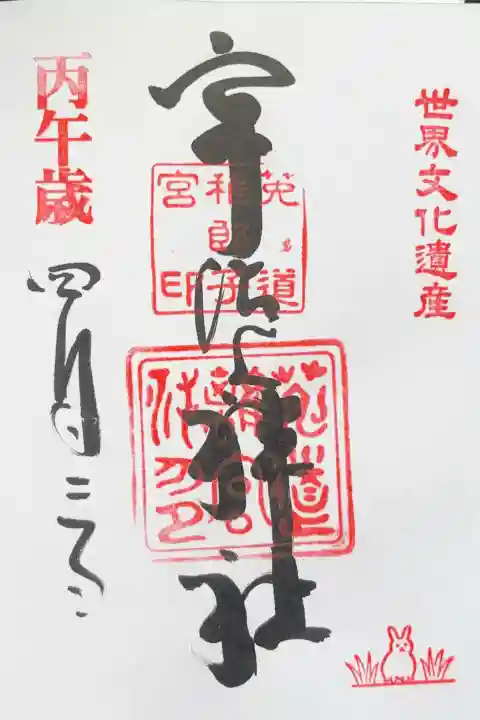 世界文化遺産
宇治上神社
菟道
稚郎子
宮印
丙午歳
四月